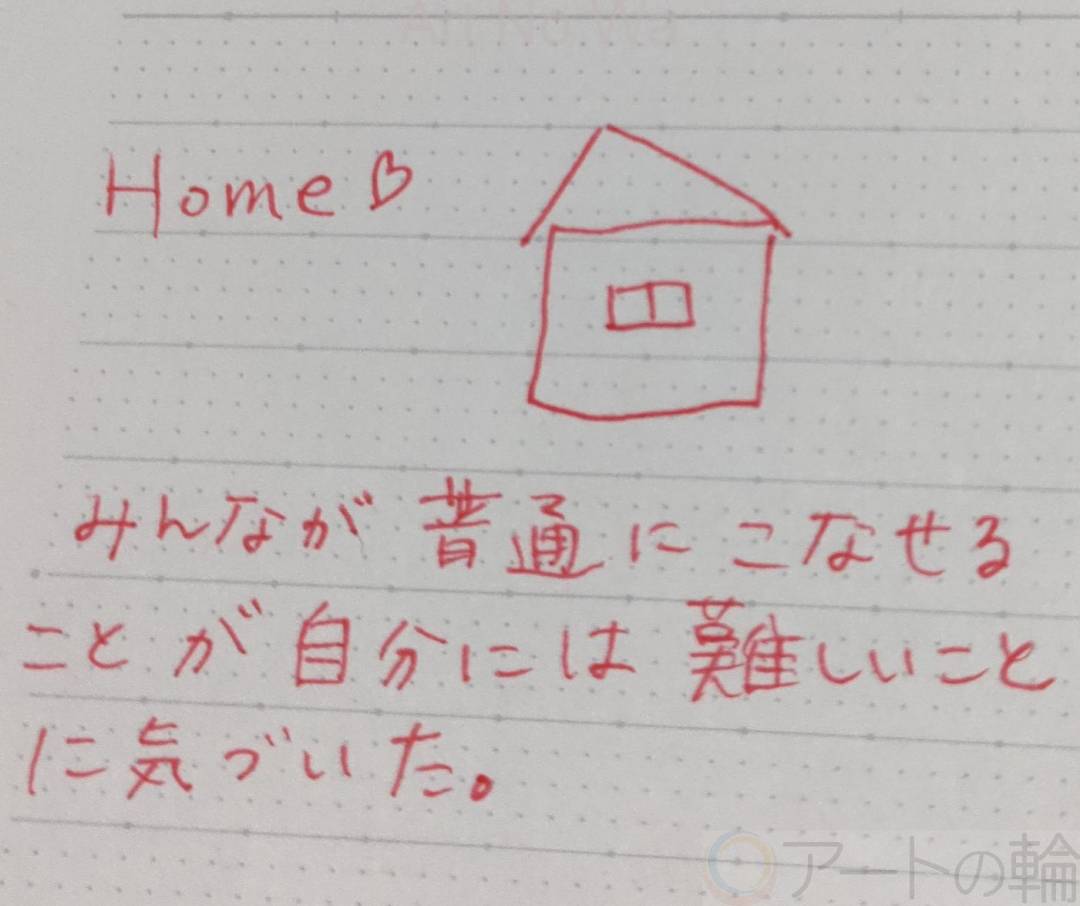 Home♡
みんなが普通にこなせる
ことが自分には難しいこと
に気づいた。
アートの輪